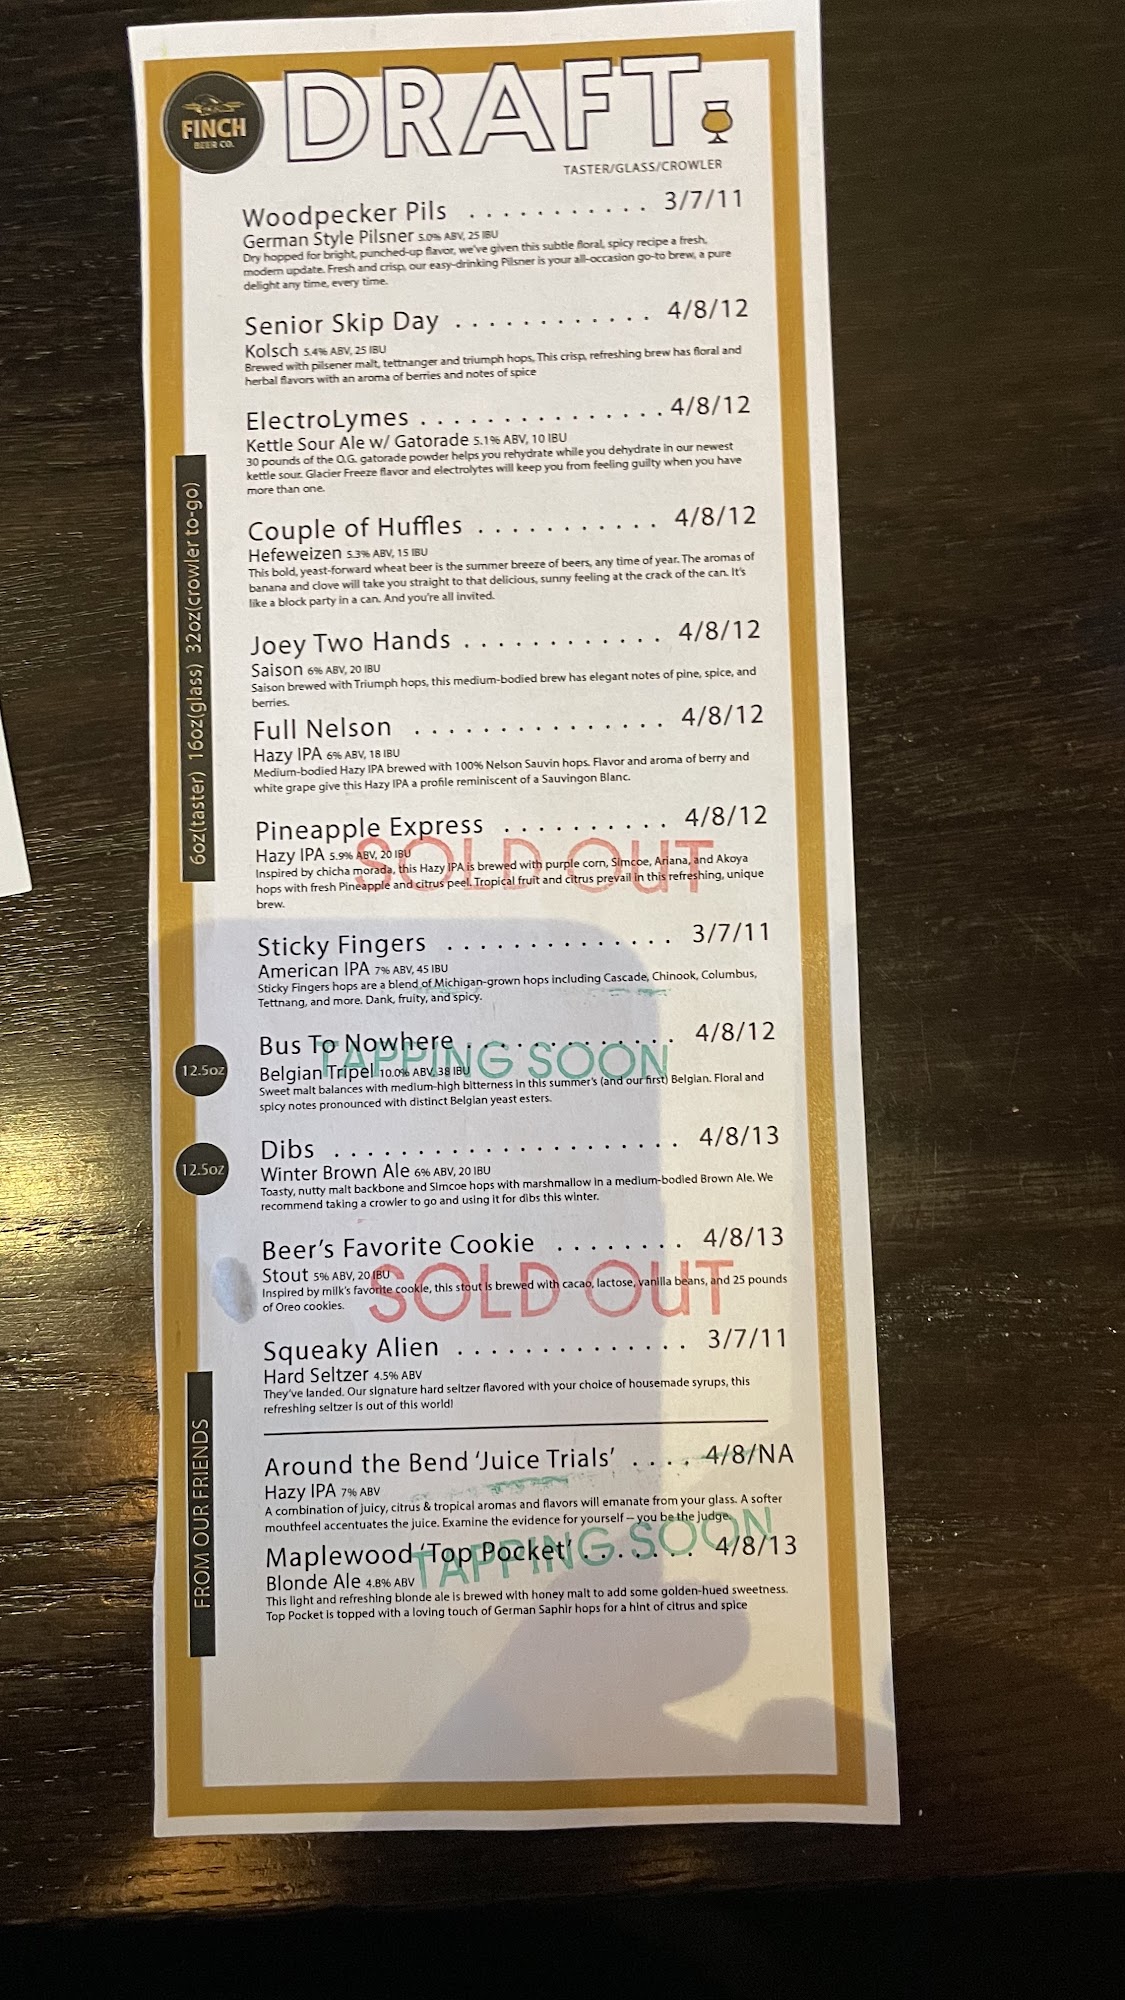 FINCH
BEER CO.
DRAFT
TASTER/GLASS/CROWLER
Woodpecker Pils . . . . . . . . . . . 3/7/11
German Style Pilsner 5.0% ABV, 25 IBU
Dry hopped for bright, punched-up flavor, we've given this subtle floral, spicy recipe a fresh,
modern update. Fresh and crisp, our easy-drinking Pilsner is your all-occasion go-to brew, a pure
delight any time, every time.
Senior Skip Day . . . . . . . . . . . . 4/8/12
Kolsch 5.4% ABV, 25 IBU
Brewed with pilsener malt, tettnanger and triumph hops, This crisp, refreshing brew has floral and
herbal flavors with an aroma of berries and notes of spice
ElectroLymes . . . . . . . . . . . . . . . 4/8/12
Kettle Sour Ale w/ Gatorade 5.1% ABV, 10 IBU
30 pounds of the O.G. gatorade powder helps you rehydrate while you dehydrate in our newest
kettle sour. Glacier Freeze flavor and electrolytes will keep you from feeling guilty when you have
more than one.
Couple of Huffles . . . . . . . . . . . 4/8/12
Hefeweizen 5.3% ABV, 15 IBU
This bold, yeast-forward wheat beer is the summer breeze of beers, any time of year. The aromas of
banana and clove will take you straight to that delicious, sunny feeling at the crack of the can. It's
like a block party in a can. And you're all invited.
Joey Two Hands . . . . . . . . . . . . 4/8/12
Saison 6% ABV, 20 IBU
Saison brewed with Triumph hops, this medium-bodied brew has elegant notes of pine, spice, and
berries.
Full Nelson . . . . . . . . . . . . . . 4/8/12
Hazy IPA 6% ABV, 18 IBU
Medium-bodied Hazy IPA brewed with 100% Nelson Sauvin hops. Flavor and aroma of berry and
white grape give this Hazy IPA a profile reminiscent of a Sauvingon Blanc.
6oz(taster) 16oz(glass) 32oz(crowler to-go)
Pineapple Express . . . . . . . . . . 4/8/12
SOLD OUT
Hazy IPA 5.9% ABV, 20 IBU
Inspired by chicha morada, this Hazy IPA is brewed with purple corn, Simcoe, Ariana, and Akoya
hops with fresh Pineapple and citrus peel. Tropical fruit and citrus prevail in this refreshing, unique
brew.
Sticky Fingers . . . . . . . . . . . . . . 3/7/11
American IPA 7% ABV, 45 IBU
Sticky Fingers hops are a blend of Michigan-grown hops including Cascade, Chinook, Columbus,
Tettnang, and more. Dank, fruity, and spicy.
Bus To Nowhere . . . . . . . . . . . . . 4/8/12
TAPPING SOON
12.5oz
Belgian Tripel 10.0% ABV, 38 IBU
Sweet malt balances with medium-high bitterness in this summer's (and our first) Belgian. Floral and
spicy notes pronounced with distinct Belgian yeast esters.
Dibs . . . . . . . . . . . . . . . . . . . . . 4/8/13
12.5oz
Winter Brown Ale 6% ABV, 20 IBU
Toasty, nutty malt backbone and Simcoe hops with marshmallow in a medium-bodied Brown Ale. We
recommend taking a crowler to go and using it for dibs this winter.
Beer's Favorite Cookie . . . . . . . . 4/8/13
SOLD OUT
Stout 5% ABV, 20 IBU
Inspired by milk's favorite cookie, this stout is brewed with cacao, lactose, vanilla beans, and 25 pounds
of Oreo cookies.
Squeaky Alien . . . . . . . . . . . . . . 3/7/11
Hard Seltzer 4.5% ABV
They've landed. Our signature hard seltzer flavored with your choice of housemade syrups, this
refreshing seltzer is out of this world!
FROM OUR FRIENDS
Around the Bend 'Juice Trials' . . . . 4/8/NA
Hazy IPA 7% ABV
A combination of juicy, citrus & tropical aromas and flavors will emanate from your glass. A softer
mouthfeel accentuates the juice. Examine the evidence for yourself – you be the judge.
Maplewood 'Top Pocket' . . . . . . . 4/8/13
TAPPING SOON
Blonde Ale 4.8% ABV
This light and refreshing blonde ale is brewed with honey malt to add some golden-hued sweetness.
Top Pocket is topped with a loving touch of German Saphir hops for a hint of citrus and spice